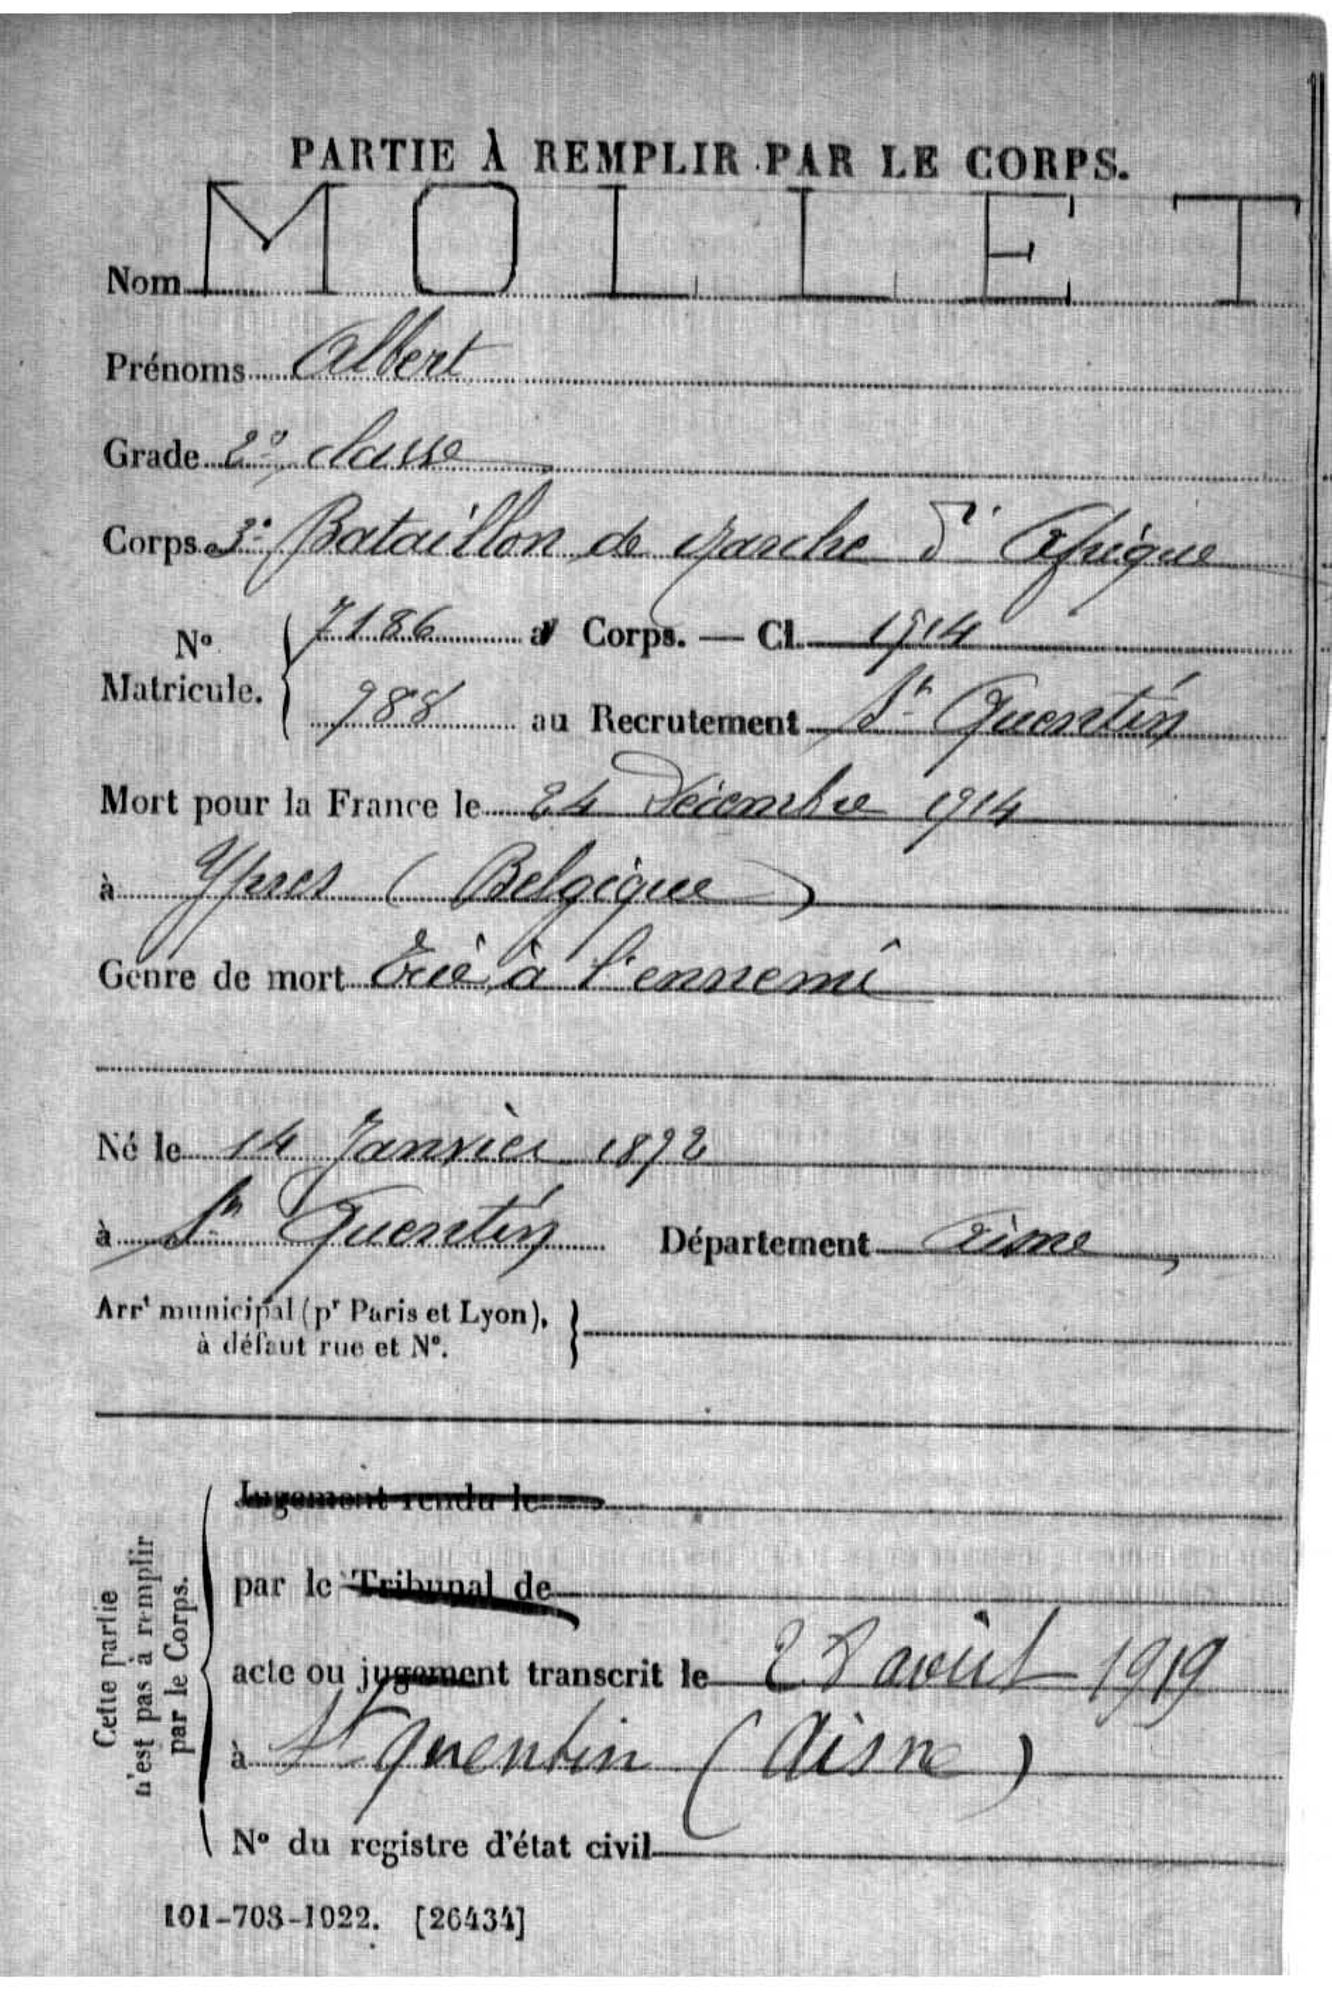 PARTIE À REMPLIR PAR LE CORPS.
Nom MOLLET
Prénoms Albert
Grade 2e classe
Corps 3e Bataillon de Marche d'Afrique
No Matricule. { 7186 au Corps. — Cl. 1914
988 au Recrutement St Quentin
Mort pour la France le 24 Décembre 1914
à Ypres (Belgique)
Genre de mort Tué à l'ennemi
Né le 14 Janvier 1892
à St Quentin Département Aisne
Arrt municipal (pr Paris et Lyon), }
à défaut rue et No.
Cette partie
n'est pas à remplir
par le Corps.
Jugement rendu le
par le Tribunal de
acte ou jugement transcrit le 28 août 1919
à St Quentin (Aisne)
No du registre d'état civil
101-708-1922. [26434]